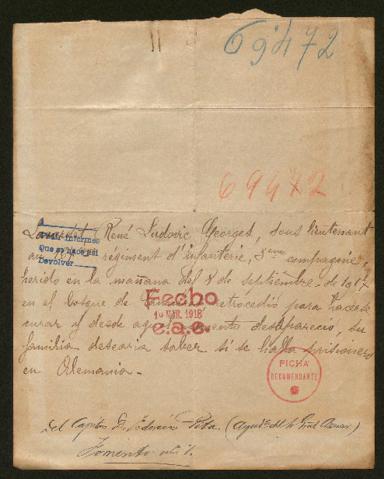 69472
69472
René Ludovic Georges, sous lieutenant
régiment d'infanterie, 3ème compagnie,
herido en la mañana del 8 de septiembre de 1917
en el bosque de retrocedió para hacerse
curar y desde aquel momento desapareció, su
familia desearia saber si se halla prisionero
en Alemania.
informes
Que se hace así
Devolver
Fecho
1918
c.a.c.
FICHA
DEMANDANTE
del Capitán D. Pita. (Ayud.
Fomento nº 1.